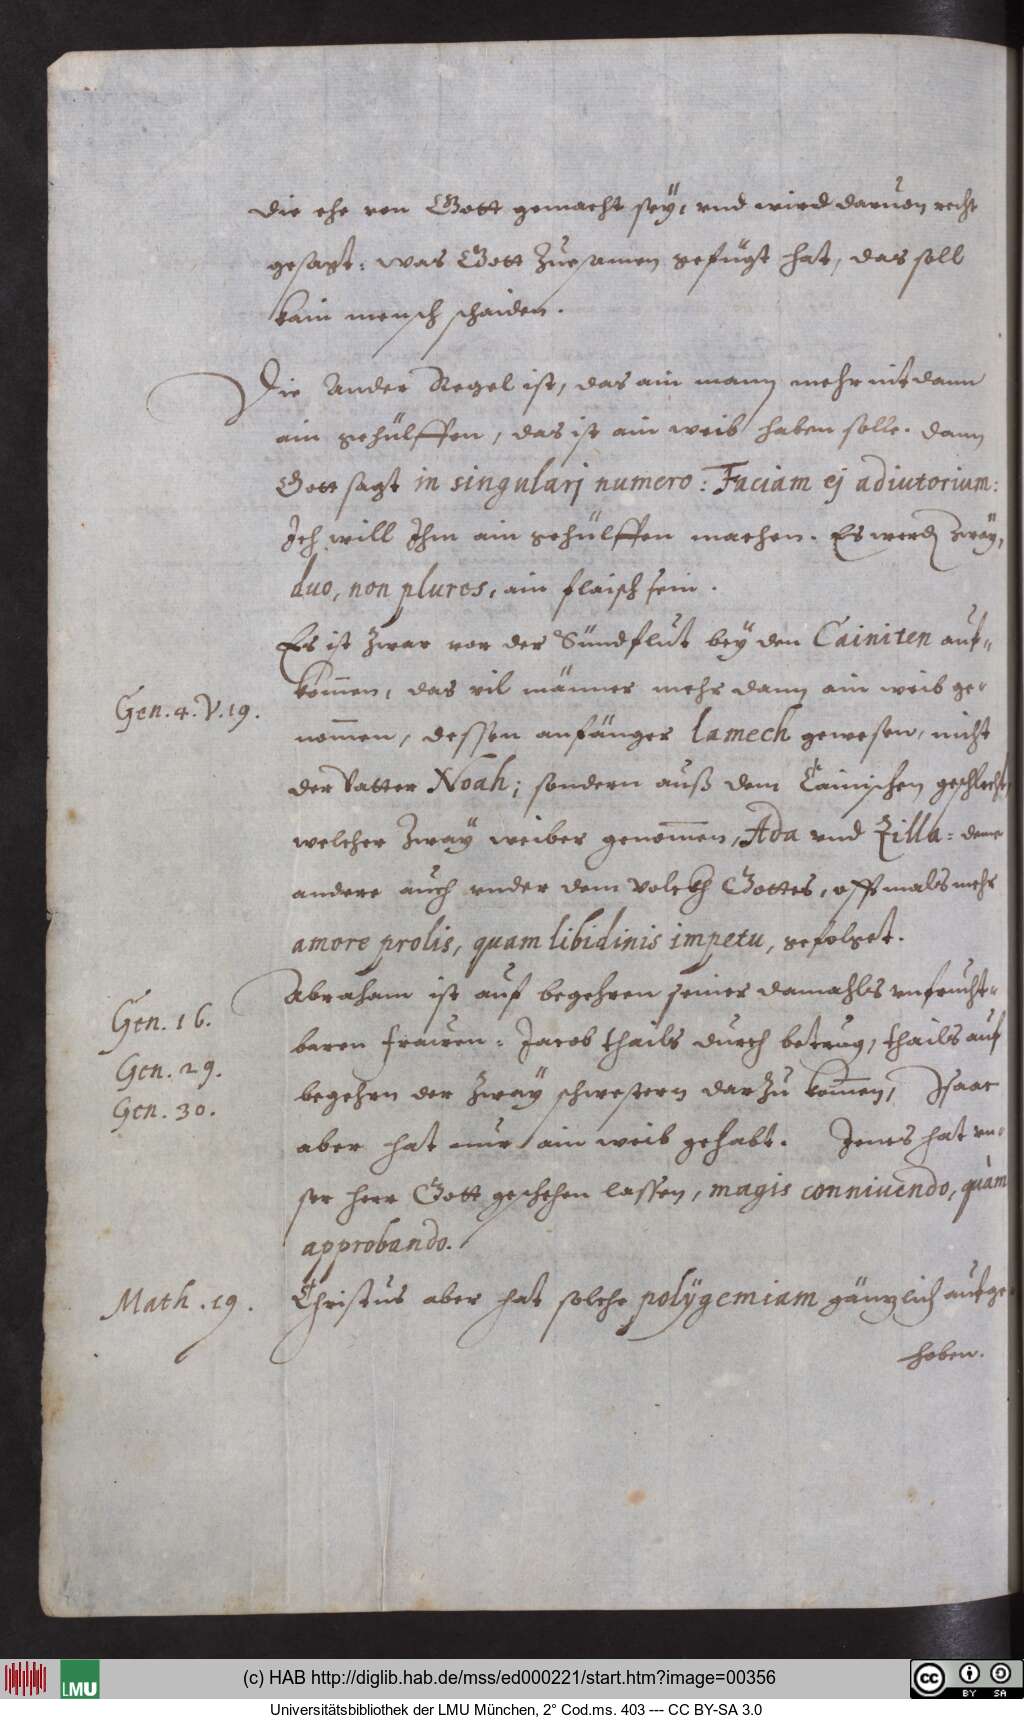 die ehe von Gott gemacht seÿ, vnd wird daruon recht
gesagt: was Gott zuesamen gefügt hat, das soll
kain mensch schaiden.
Die Ander Regel ist, das ain mann mehr nit dann
ain gehülffen, das ist ain weib haben solle. dann
Gott sagt in singularj numero: Faciam ej adiutorium:
Jch will Jhm ain gehülffen machen. Es werden zwaÿ,
duo, non plures, ain flaisch sein.
Es ist zwar vor der Sündflut beÿ den Cainiten auf-
kom̄en, das vil männer mehr dann ain weib ge-
Gen. 4. V. 19.
nom̄en, dessen anfänger Lamech gewesen, nicht
der Vatter Noah; sondern auß dem Cainischen geschlecht,
welcher zwaÿ weiber genom̄en, Ada vnd Zilla: deme
andere auch vnder dem volckh Gottes, offtmals mehr
amore prolis, quam libidinis impetu, gefolget.
Gen. 16.
Gen. 29.
Gen. 30.
Abraham ist auf begehren seines damahls vnfrucht-
baren frawen: Jacob thails durch betrug, thails auf
begehrn der zwaÿ schwestern darzu kom̄en, Jsaac
aber hat nur ain weib gehabt. Jenes hat vn-
ser herr Gott geschehen lassen, magis connivendo, quàm
approbando.
Math. 19.
Christus aber hat solche polÿgemiam gänzlich aufge-
hoben.
(c) HAB http://diglib.hab.de/mss/ed000221/start.htm?image=00356
LMU
cc BY SA
Universitätsbibliothek der LMU München, 2° Cod.ms. 403 --- CC BY-SA 3.0